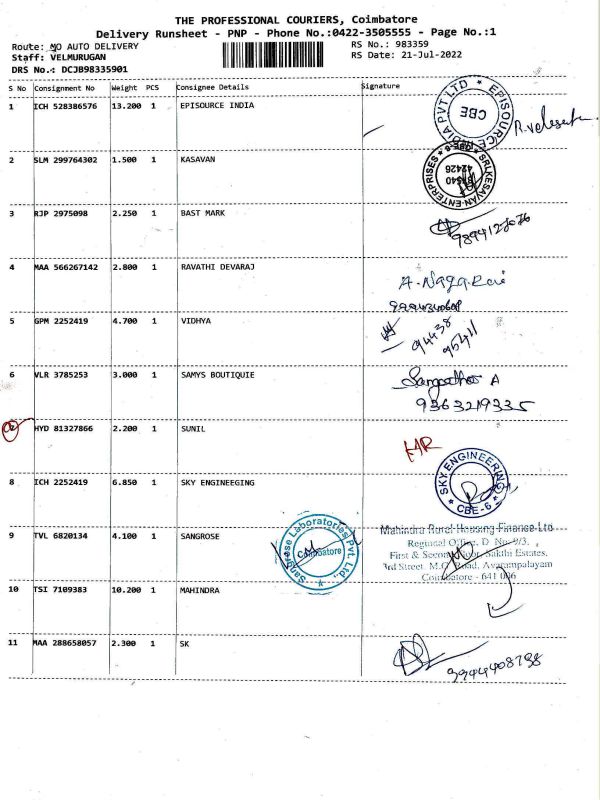 THE PROFESSIONAL COURIERS, Coimbatore
Delivery Runsheet - PNP - Phone No.:0422-3505555 - Page No.:1
Route: MO AUTO DELIVERY
RS No.: 983359
Staff: VELMURUGAN
RS Date: 21-Jul-2022
DRS No.: DCJB98335901
S No Consignment No Weight PCS Consignee Details Signature
1 ICH 528386576 13.200 1 EPISOURCE INDIA
EPISOURCE INDIA PVT LTD
CBE
2 SLM 299764302 1.500 1 KASAVAN
SRI KESAVAN ENTERPRISES
CBE-6
42426
3 RJP 2975098 2.250 1 BAST MARK
4 MAA 566267142 2.800 1 RAVATHI DEVARAJ
A. Naga
5 GPM 2252419 4.700 1 VIDHYA
94438
95411
6 VLR 3785253 3.000 1 SAMYS BOUTIQUIE
A
9363219335
HYD 81327866 2.200 1 SUNIL
HR
8 ICH 2252419 6.850 1 SKY ENGINEEGING
SKY ENGINEERING
CBE-6
9 TVL 6820134 4.100 1 SANGROSE
Sangrose Laboratories Pvt. Ltd.,
Coimbatore
Mahindra Rural Housing Finance Ltd
Regional Office, D. No. 9/3,
First & Second Floor, Sakthi Estates,
3rd Street, M.G. Road, Avarampalayam
Coimbatore - 641 006
10 TSI 7109383 10.200 1 MAHINDRA
11 MAA 288658057 2.300 1 SK
9944408798